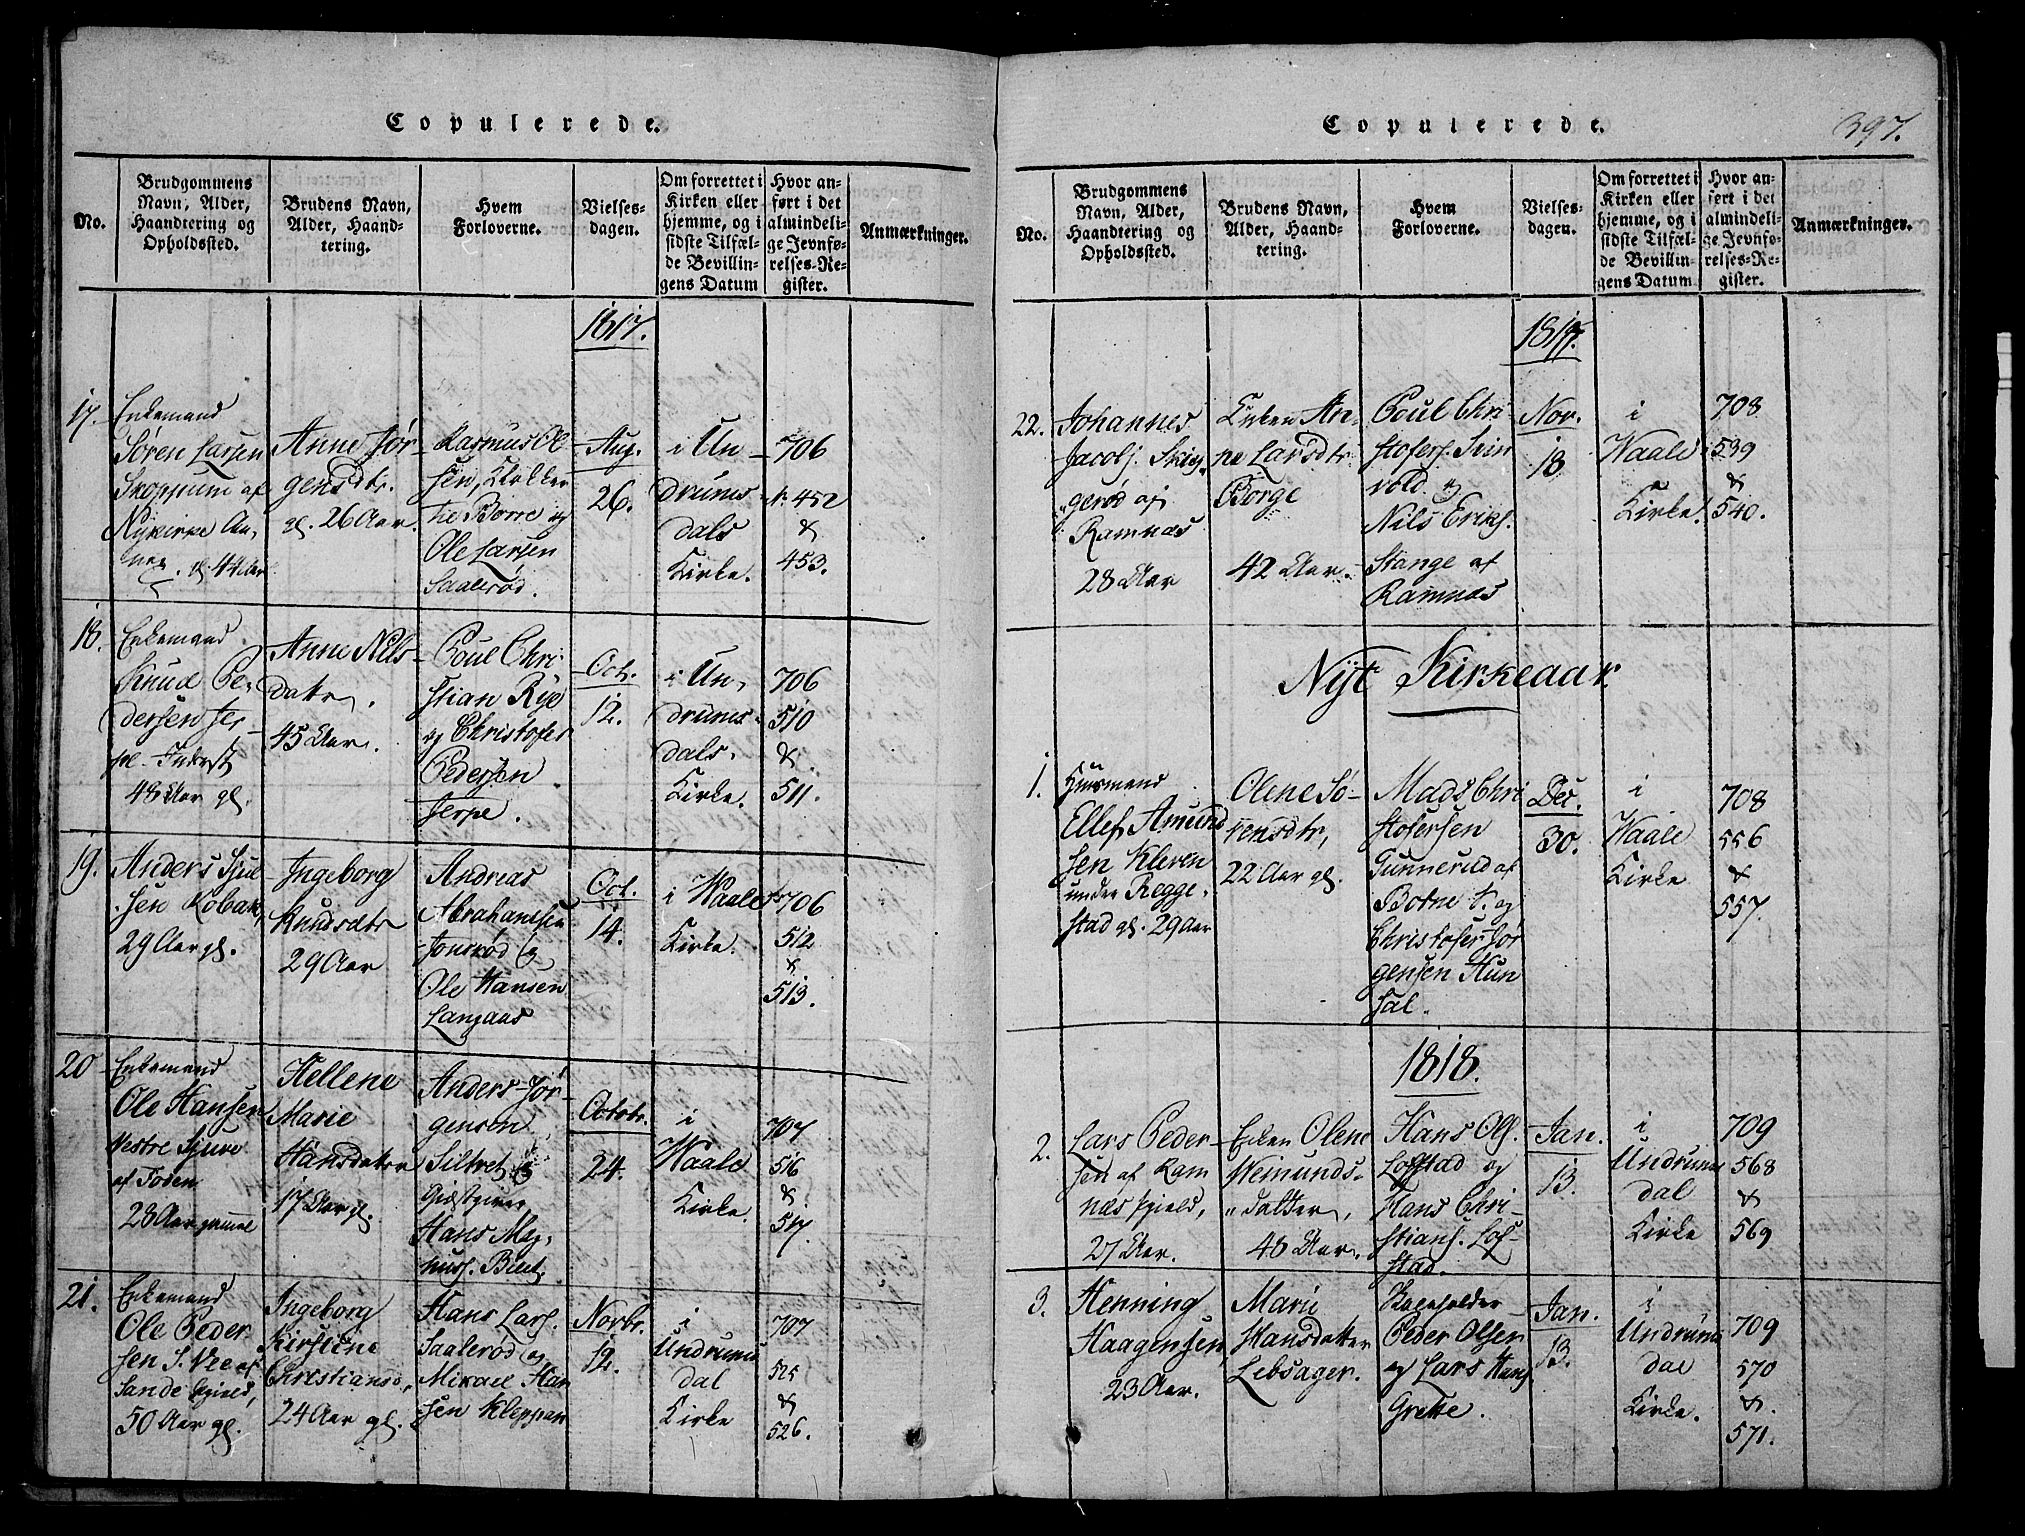 Copulerede.
No.
Brudgommens
Navn, Alder,
Haandtering og
Opholdssted.
Brudens Navn,
Alder, Haand-
tering.
Hvem
Forloverne.
Vielses-
dagen.
Om forrettet i
Kirken eller
hjemme, og i
sidste Tilfæl-
de Bevillin-
gens Datum
Hvor an-
ført i det
almindeli-
ge Jevnfø-
relses-Re-
gister.
Anmærkninger.
1817.
17.
Enkemand
Søren Larsen
Skoppum af
Nykirke An-
nex. gl. 44 Aar
Anne Jør-
gensdtr.
gl. 26 Aar.
Rasmus Ol
sen, Klokker
til Borre og
Ole Larsen
Saalerød.
Aug.
26.
i Un-
drums
dals
Kirke.
706
n. 452
&
453.
18.
Enkemand
Knud Pe-
dersen Jer-
pe - Inderst
48 Aar gl.
Anne Nils-
datr.
45 Aar.
Poul Chri
stian Rye
og Christofer
Pedersen
Jerpe.
Oct.
12.
i Un-
drums-
dals.
Kirke.
706
510
&
511.
19.
Anders Sjul
sen Kobak,
29 Aar gl.
Ingeborg
Knudsdtr
29 Aar
Andreas
Abrahamsen
Jonsrød og
Ole Hansen
Langaas
Oct.
14.
i Waale
Kirke.
706
512
&
513.
20
Enkemand
Ole Hansen
Vestre Sjuve
af Foden
28 Aar gamel
Hellene
Marie
Hansdater
17 Aar gl.
Anders Jør-
gensen
Siltvet og
Giæstgiver
Hans Mag-
nuss. Bleet.
Octobr.
24.
i
Waale
Kirke.
707
516
&
517.
21.
Enkemand
Ole Peder
sen S. Vee af
Sande Gield,
50 Aar gl.
Ingeborg
Kirstine
Christiansd,
24 Aar gl.
Hans Lars.
Saalerød og
Mikael Han
sen Kleppan
Novbr.
12.
i
Undrums
dal
Kirke
707
525
&
526.
Copulerede.
397.
No.
Brudgommens
Navn, Alder,
Haandtering og
Opholdssted.
Brudens Navn,
Alder, Haand-
tering.
Hvem
Forloverne.
Vielses-
dagen.
Om forrettet i
Kirken eller
hjemme, og i
sidste Tilfæl-
de Bevillin-
gens Datum
Hvor an-
ført i det
almindeli-
ge Jevnfø-
relses-Re-
gister.
Anmærkninger.
1817.
22.
Johannes
Jacobs. Skig-
gerød af
Ramnæs
28 Aar
Enken An-
ne Larsdtr.
Borge
42 Aar.
Poul Chri
stofers. Svin
vold. og
Nils Eriks.
Stange af
Ramnæs
Nov.
18
i
Waale
Kirke.
708
539
&
540.
Nyt Kirkeaar.
1.
Huusmand
Ellef Amund
sen Kleven
under Regge-
stad gl. 29 Aar
Olene Sø-
rensdtr,
22 Aar gl.
Mads Chri
stofersen
Gunnerud af
Botne S. og
Christofer Jør
gensen Hun
sal.
Dec.
30.
i
Waale
Kirke
708
556
&
557.
1818.
2.
Lars Peder-
sen af Ram
næs Gield,
27 Aar.
Enken Olene
Weimunds-
datter,
48 Aar.
Hans Ols.
Lofstad og
Hans Chri-
stians. Lof-
stad.
Jan.
13.
i
Undrums
dal
Kirke
709
568
&
569
3.
Henning
Haagensen,
23 Aar.
Marie
Hansdatter
Lebsager.
Peder Olsen
og Lars Hans
Grette.
Jan.
13.
i
Undrums
dal
Kirke.
709
570
&.
571.